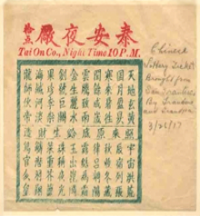 泰安夜廠
拾点
Tai On Co., Night Time 10 P.M.
天地玄黃宇宙洪荒
日月盈昃辰宿列張
寒來暑往秋收冬藏
閏餘成歲律呂調陽
雲騰致雨露結為霜
金生麗水玉出崑岡
劍號巨闕珠稱夜光
果珍李柰菜重芥薑
海鹹河淡鱗潛羽翔
龍師火帝鳥官人皇
Chinese
Lottery Ticket
Brought from
By Grandma
and Grandpa
3/25/17